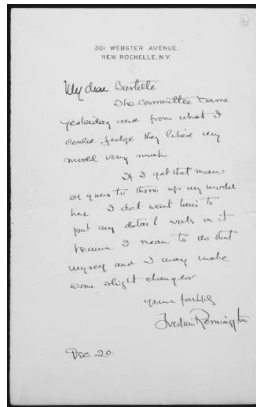 301 WEBSTER AVENUE.
NEW ROCHELLE, N.Y.
My dear Bartlett
The committee came
yesterday and from what I
could judge they liked my
model very much
If I get that man
of yours to throw up my model
here I dont want him to
put any detail work in it
because I mean to do that
myself and I may make
some slight changes
Yours faithfully
Frederic Remington
Dec. 20.